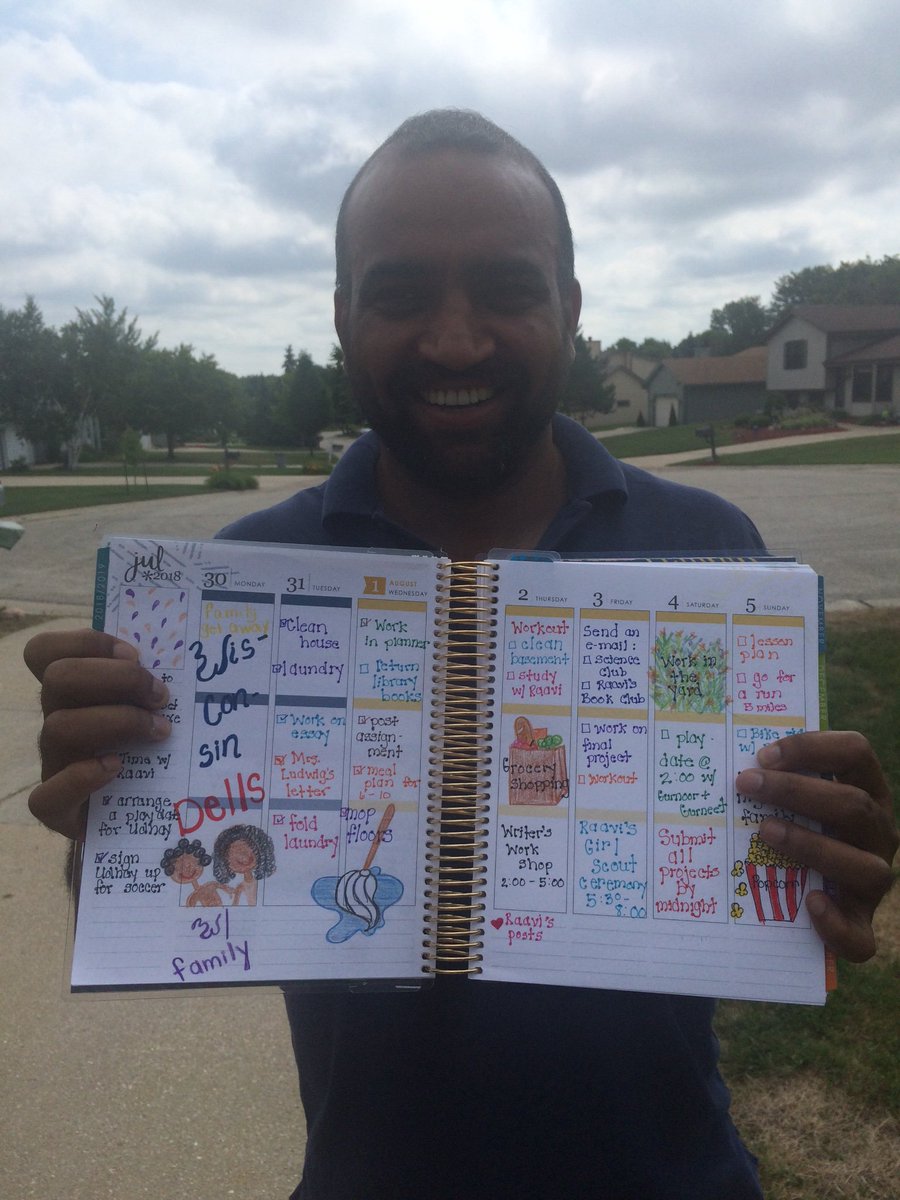 2018/2019
jul
*2018
to
Time w/
Raavi
☑ arrange
a playdate
for Udhay
☑ sign
Udhay up
for soccer
30 MONDAY
Family
Get away
Wis-
con-
sin
Dells
w/
family
31 TUESDAY
☑ Clean
house
☑ laundry
☑ Work on
essay
☑ Mrs.
Ludwig's
letter
☑ fold
laundry
1 AUGUST
WEDNESDAY
☑ Work
in planner
☐ Return
library
books
☑ post
assign-
ment
☑ meal
plan for
6-10
☑ mop
floors
2 THURSDAY
Workout
☐ clean
basement
☐ study
w/ Raavi
Grocery
shopping
Writer's
Work
shop
2:00-5:00
♥ Raavi's
posts
3 FRIDAY
Send an
e-mail:
☐ Science
Club
☐ Raavi's
Book Club
☐ work on
final
project
☐ Workout
Raavi's
Girl
Scout
Ceremony
5:30-
8:00
4 SATURDAY
Work in
the
yard
☐ play
date @
2:00 w/
Gurnoor +
Gurneet
Submit
all
projects
by
midnight
5 SUNDAY
☐ lesson
plan
☐ go for
a run
3 miles
☐ Bike
w/
family
Popcorn